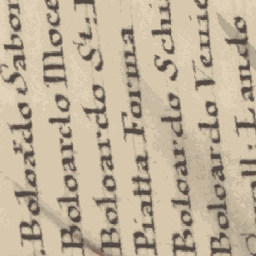 Boloardo Sabor
Boloardo Moce
Boloardo St:
Piatta Forma
Boloardo Schi
Boloardo Venie
Lando